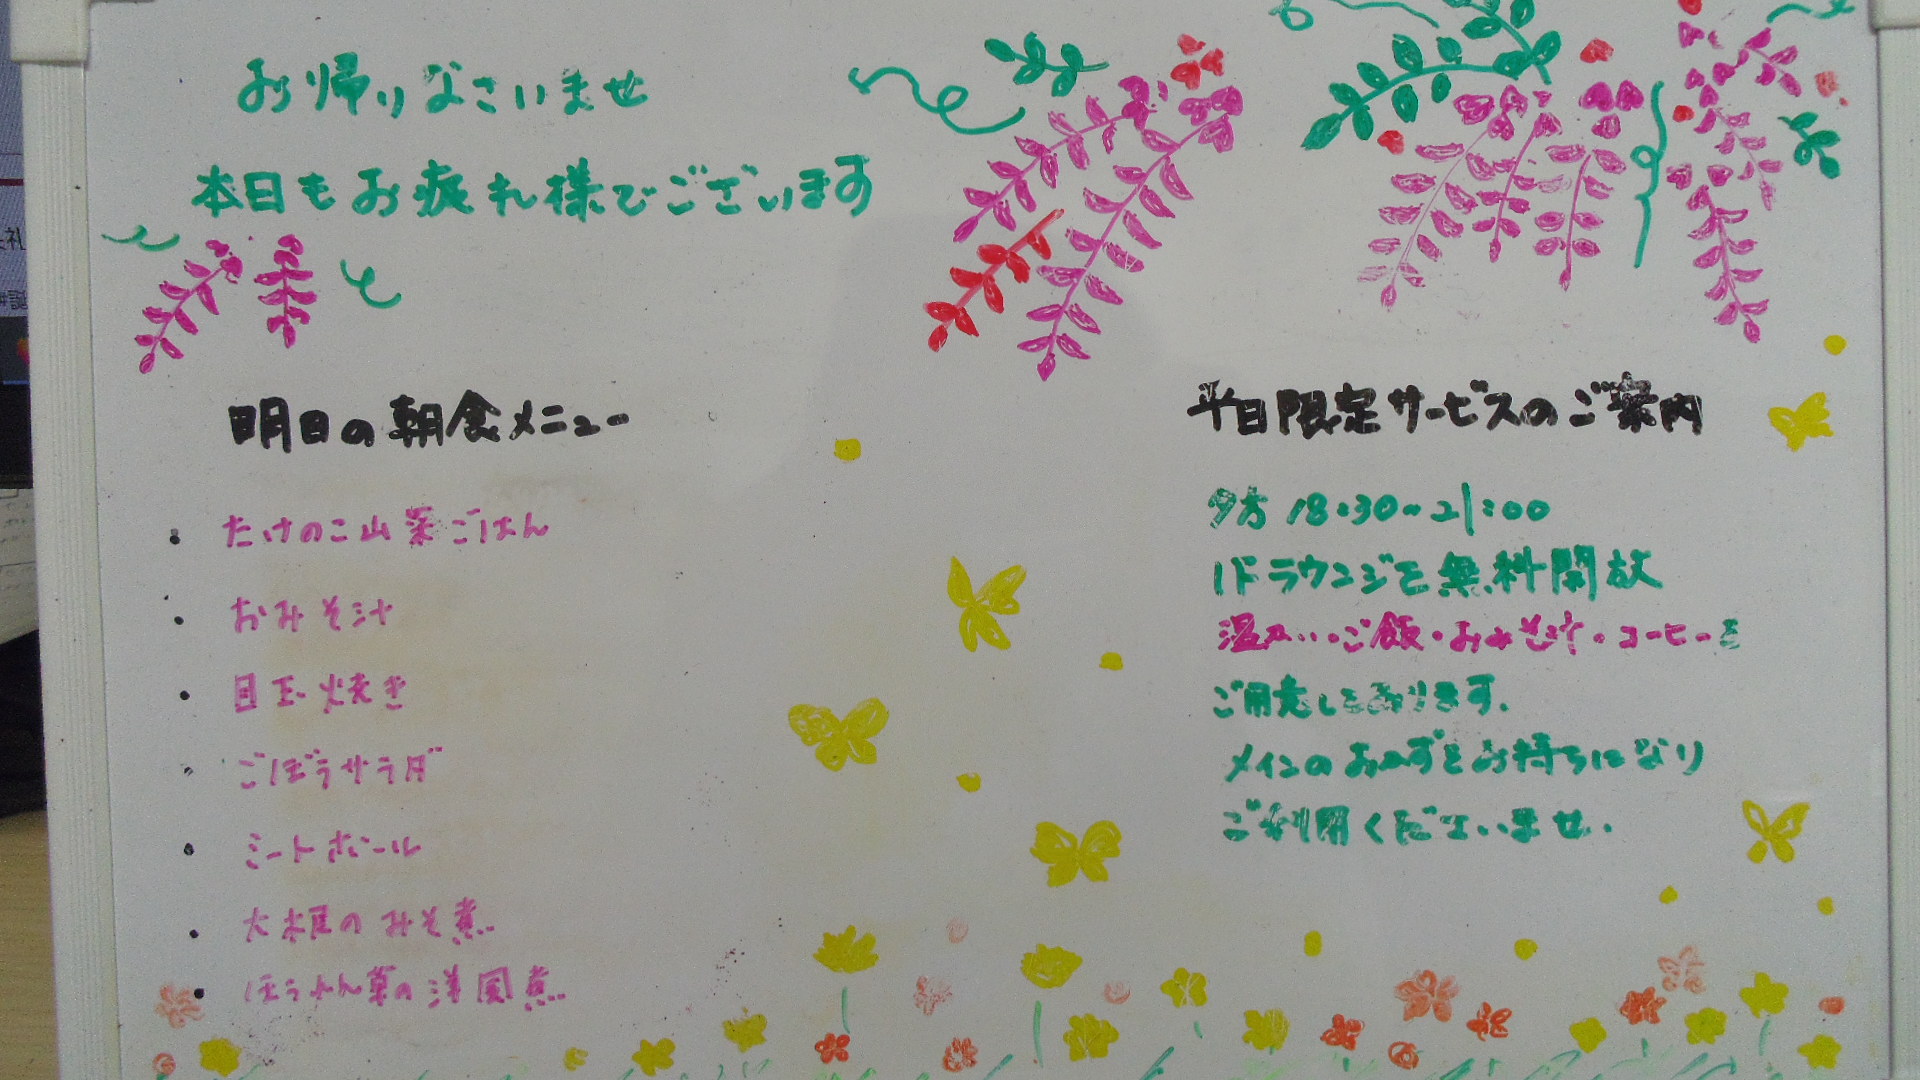 お帰りなさいませ
本日もお疲れ様でございます
明日の朝食メニュー
・たけのこ山菜ごはん
・おみそ汁
・目玉焼き
・ごぼうサラダ
・ミートボール
・大根のみそ煮
・ほうれん草の洋風煮
平日限定サービスのご案内
夕方 18:30~21:00
1Fラウンジを無料開放
温かいご飯・おみそ汁・コーヒーを
ご用意しております。
メインのおかずをお持ちになり
ご利用くださいませ。